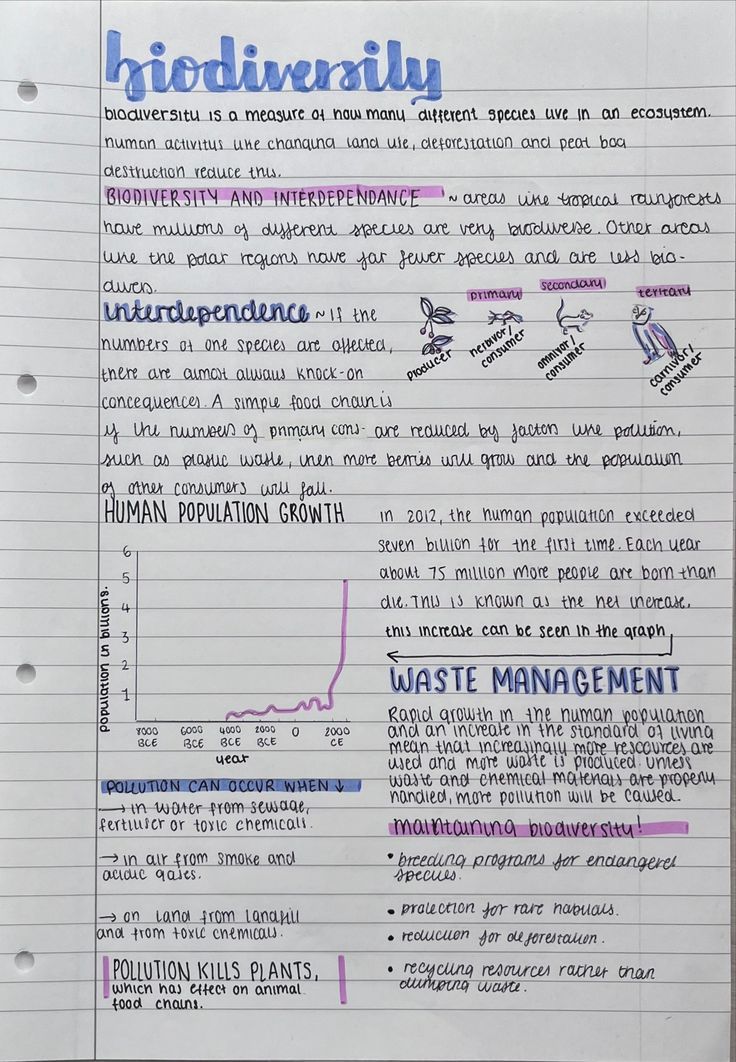 biodiversity
biodiversity is a measure of how many different species live in an ecosystem.
human activitys like changing land use, deforestation and peat bog
destruction reduce this.
BIODIVERSITY AND INTERDEPENDANCE ~ areas like tropical rainforests
have millions of different species are very biodiverse. Other areas
like the polar regions have far fewer species and are less bio-
divers.
interdependence ~ If the
numbers of one species are affected,
there are almost always knock-on
concequences. A simple food chain is
primary
secondary
teritary
producer
herbivor/
consumer
omnivor/
consumer
carnivor/
consumer
if the numbers of primary cons- are reduced by factors like pollution,
such as plastic waste, then more berries will grow and the population
of other consumers will fall.
HUMAN POPULATION GROWTH
population in billions.
6
5
4
3
2
1
8000 BCE
6000 BCE
4000 BCE
2000 BCE
0
2000 CE
year
in 2012, the human population exceeded
seven billion for the first time. Each year
about 75 million more people are born than
die. This is known as the net increase.
this increase can be seen in the graph
WASTE MANAGEMENT
Rapid growth in the human population
and an increase in the standard of living
mean that increasingly more rescources are
used and more waste is produced. unless
waste and chemical materials are properly
handled, more pollution will be caused.
POLLUTION CAN OCCUR WHEN ↓
→ in water from sewage,
fertiliser or toxic chemicals.
→ in air from smoke and
acidic gases.
→ on land from landfill
and from toxic chemicals.
POLLUTION KILLS PLANTS,
which has effect on animal
food chains.
maintaining biodiversity!
• breeding programs for endangered
species.
• protection for rare habitats.
• reduction for deforestation.
• recycling resources rather than
dumping waste.